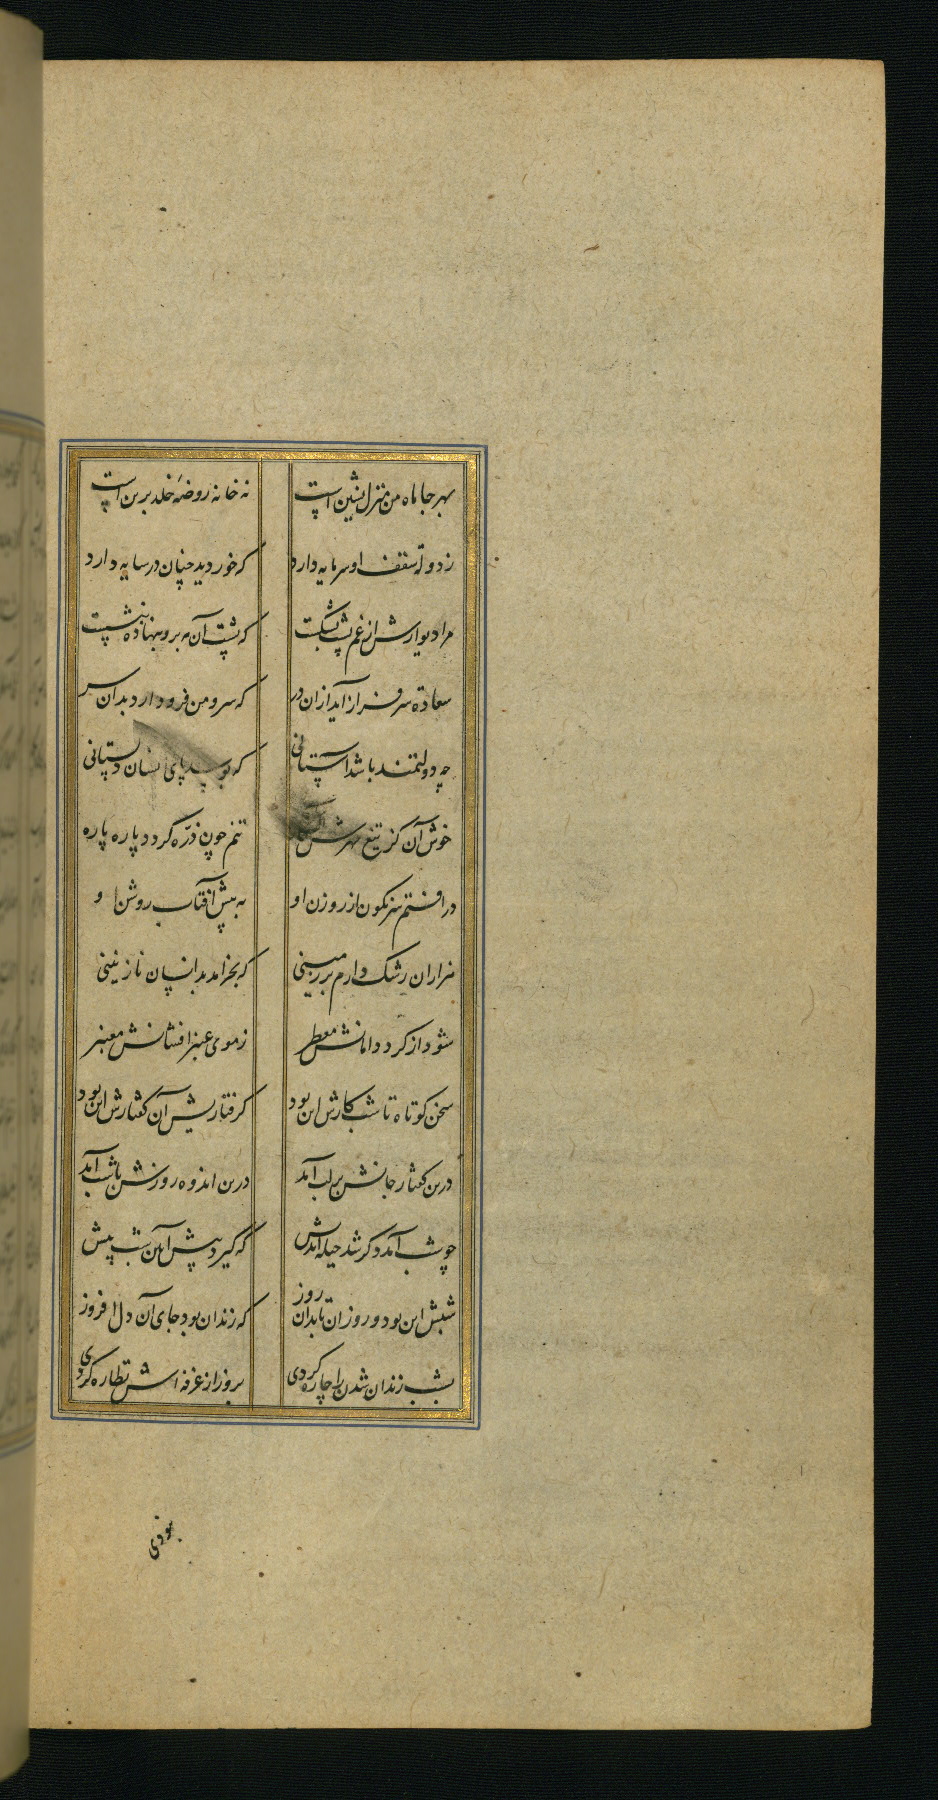 بهر جا ماه من منزل نشین است نه خانه روضه خلد برین است
ز دولة سقف او سرمایه دارد که خورشید چنان در سایه دارد
مرا دیوارش از غم پشت بشکست که پشت آن مه برو بنهاده بنشست
سعادة سرفراز آید از آن در که سرو من فرود آرد بدان سر
چه دولتمند باشد آستانی که بوسد پای آنسان دلستانی
خوش آن کز تیغ مهرش تنم چون ذره گردد پاره پاره
در افتم سرنگون از روزن او به پیش آفتاب روشن او
هزاران رشک دارم بر زمینی که بخرامد بدانسان نازنینی
شود از گرد دامانش معطر ز موی عنبر افشانش معنبر
سخن کوتاه تا شب کارش این بود گرفتاریش آن گفتارش این بود
درین گفتار جانش بر لب آمد درین اندوه روزش تا شب آمد
چو شب آمد دگر شد حیله اندیش که گیرد پیش آیین شب پیش
شبش این بود و روز ان تا بدان روز که زندان بود جای آن دل افروز
بشب زندان شدن را چاره کردی بروز از غرفه اش نظاره کردی
بودی